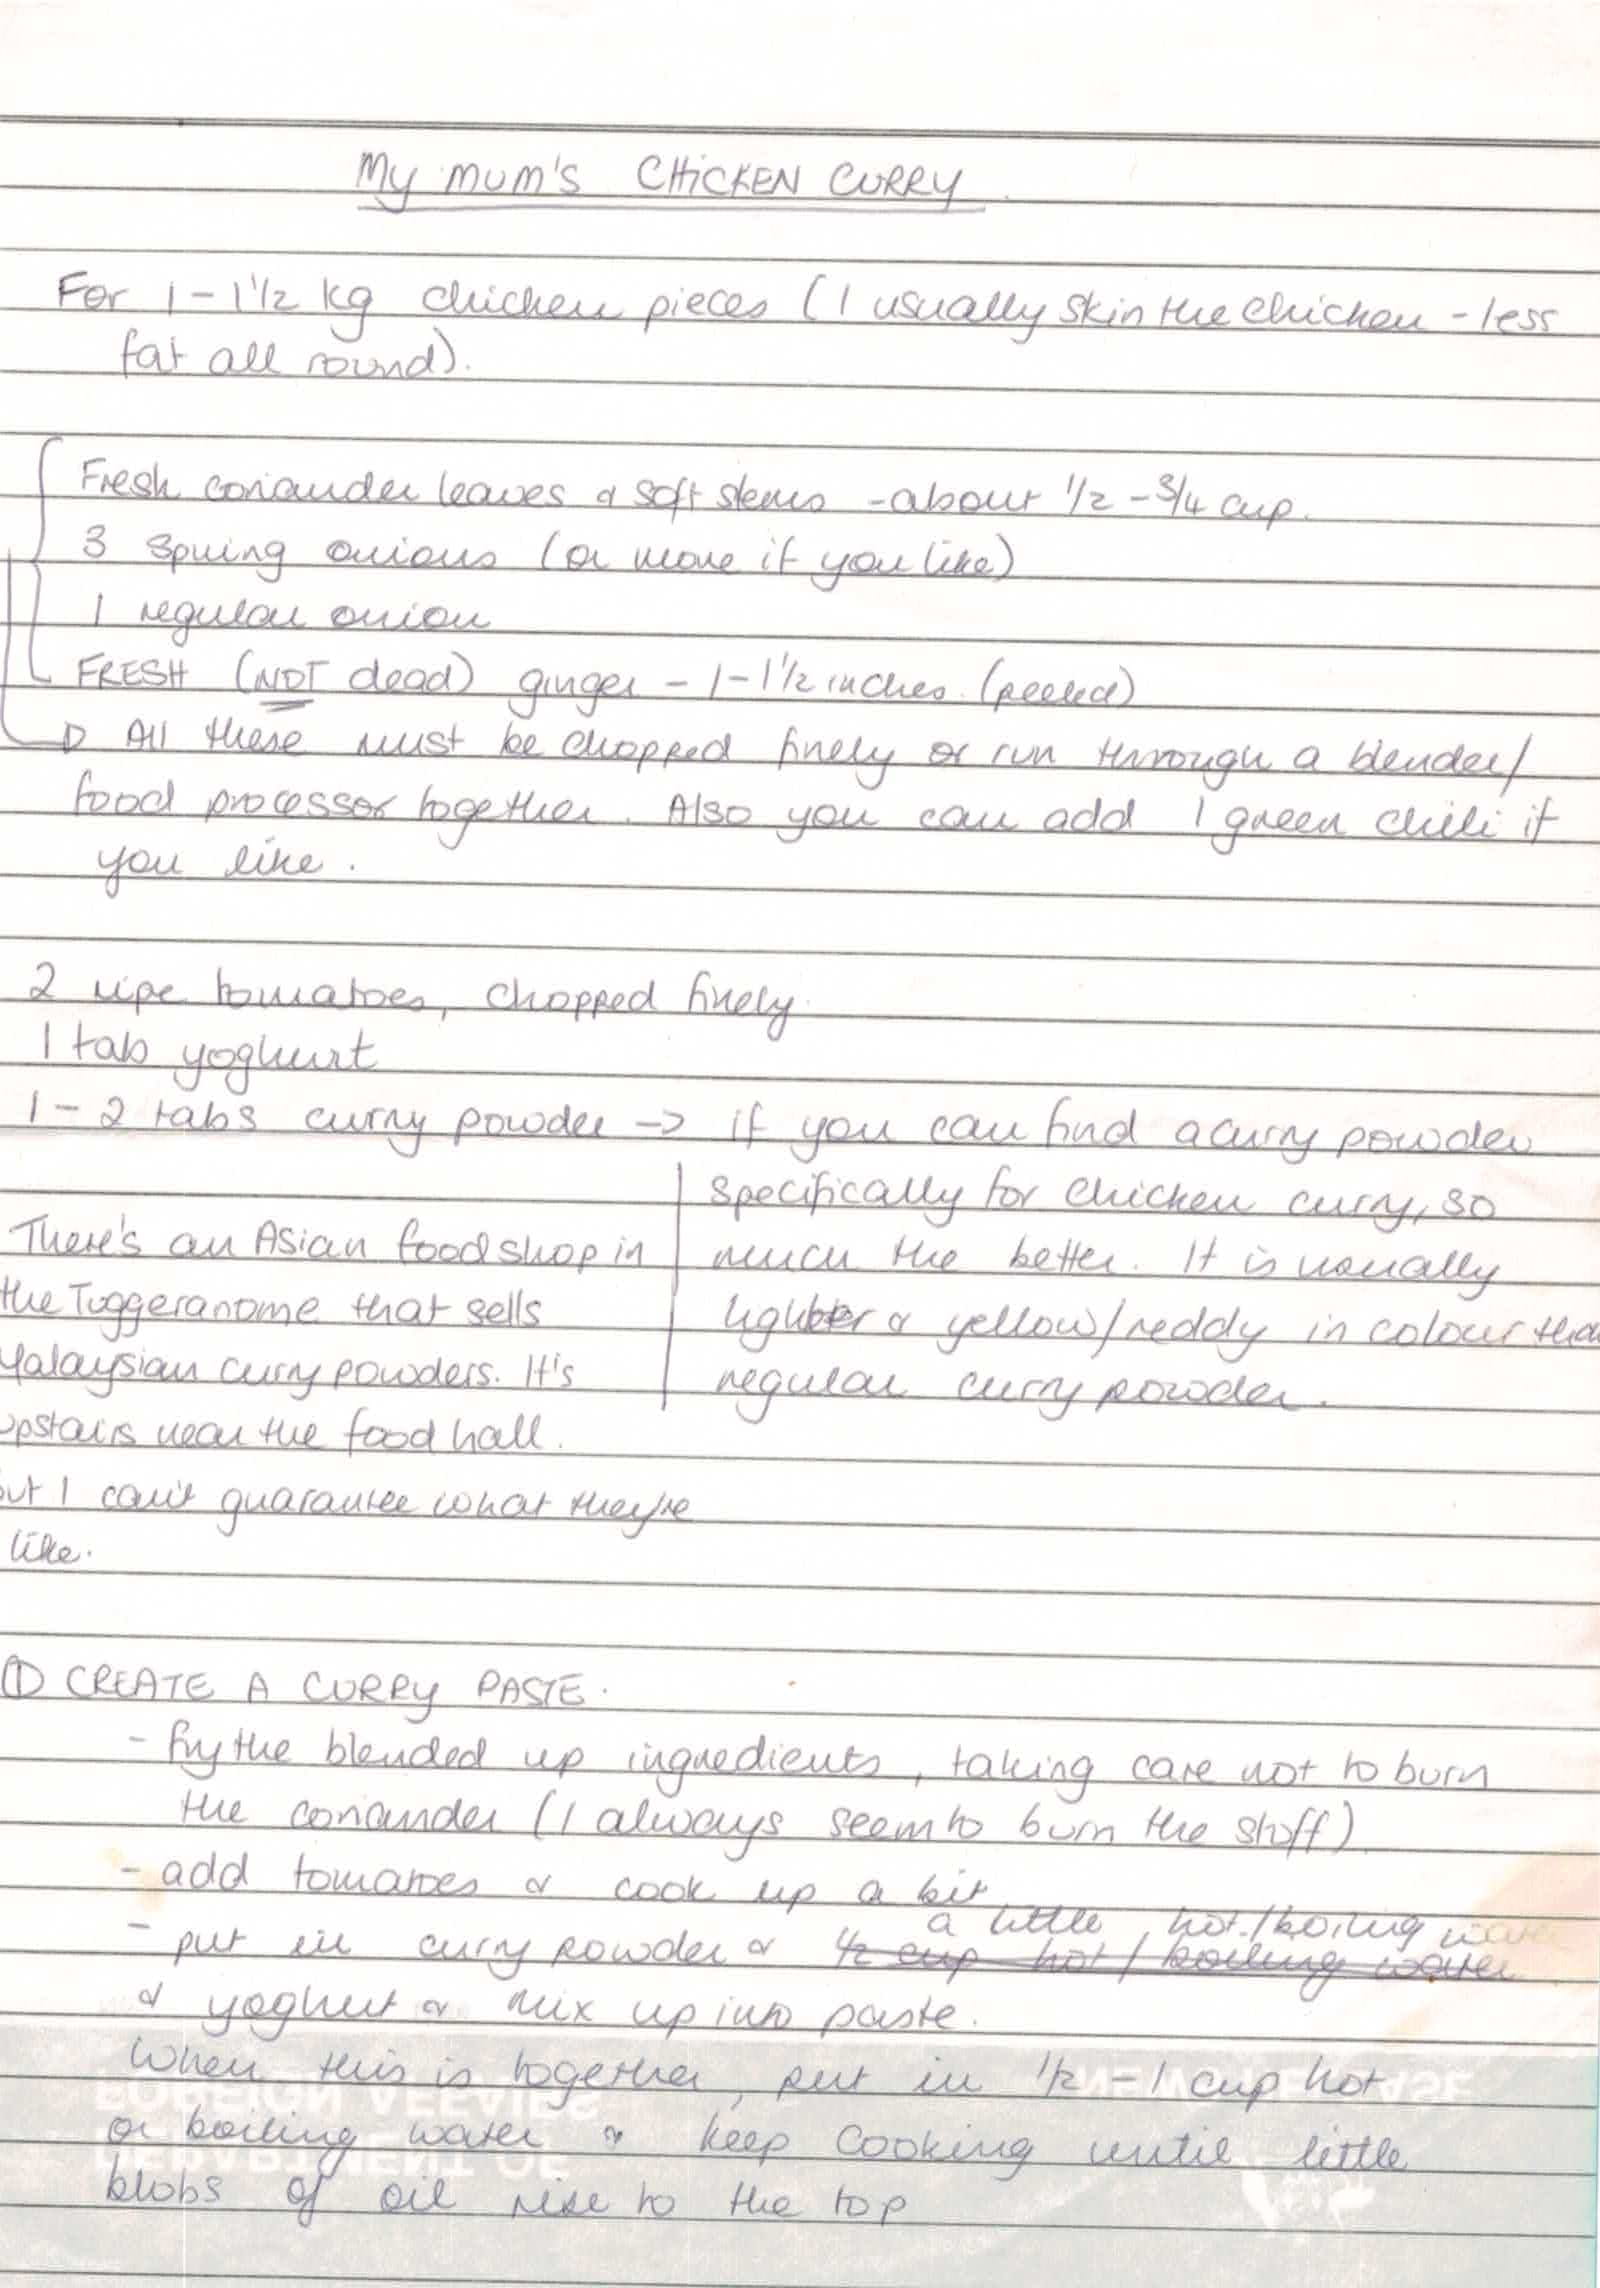 My MUM'S CHICKEN CURRY
For 1 - 1 1/2 kg chicken pieces (I usually skin the chicken - less
fat all round).
Fresh coriander leaves & soft stems - about 1/2 - 3/4 cup.
3 spring onions (or more if you like)
1 regular onion
FRESH (NOT dead) ginger - 1 - 1 1/2 inches. (peeled)
All these must be chopped finely or run through a blender/
food processor together. Also you can add 1 green chilli if
you like.
2 ripe tomatoes, chopped finely.
1 tab yoghurt
1 - 2 tabs curry powder -> if you can find a curry powder
specifically for chicken curry, so
much the better. It is usually
lighter & yellow/reddy in colour than
regular curry powder.
There's an Asian food shop in
the Tuggeranome that sells
Malaysian curry powders. It's
upstairs near the food hall.
but I can't guarantee what they're
like.
① CREATE A CURRY PASTE.
- fry the blended up ingredients, taking care not to burn
the coriander (I always seem to burn the stuff)
- add tomatoes & cook up a bit
a little hot/boiling water
- put in curry powder & 1/2 cup hot / boiling water
& yoghurt & mix up into paste.
When this is together, put in 1/2 - 1 cup hot
or boiling water & keep cooking until little
blobs of oil rise to the top
DEPARTMENT OF
FOREIGN AFFAIRS